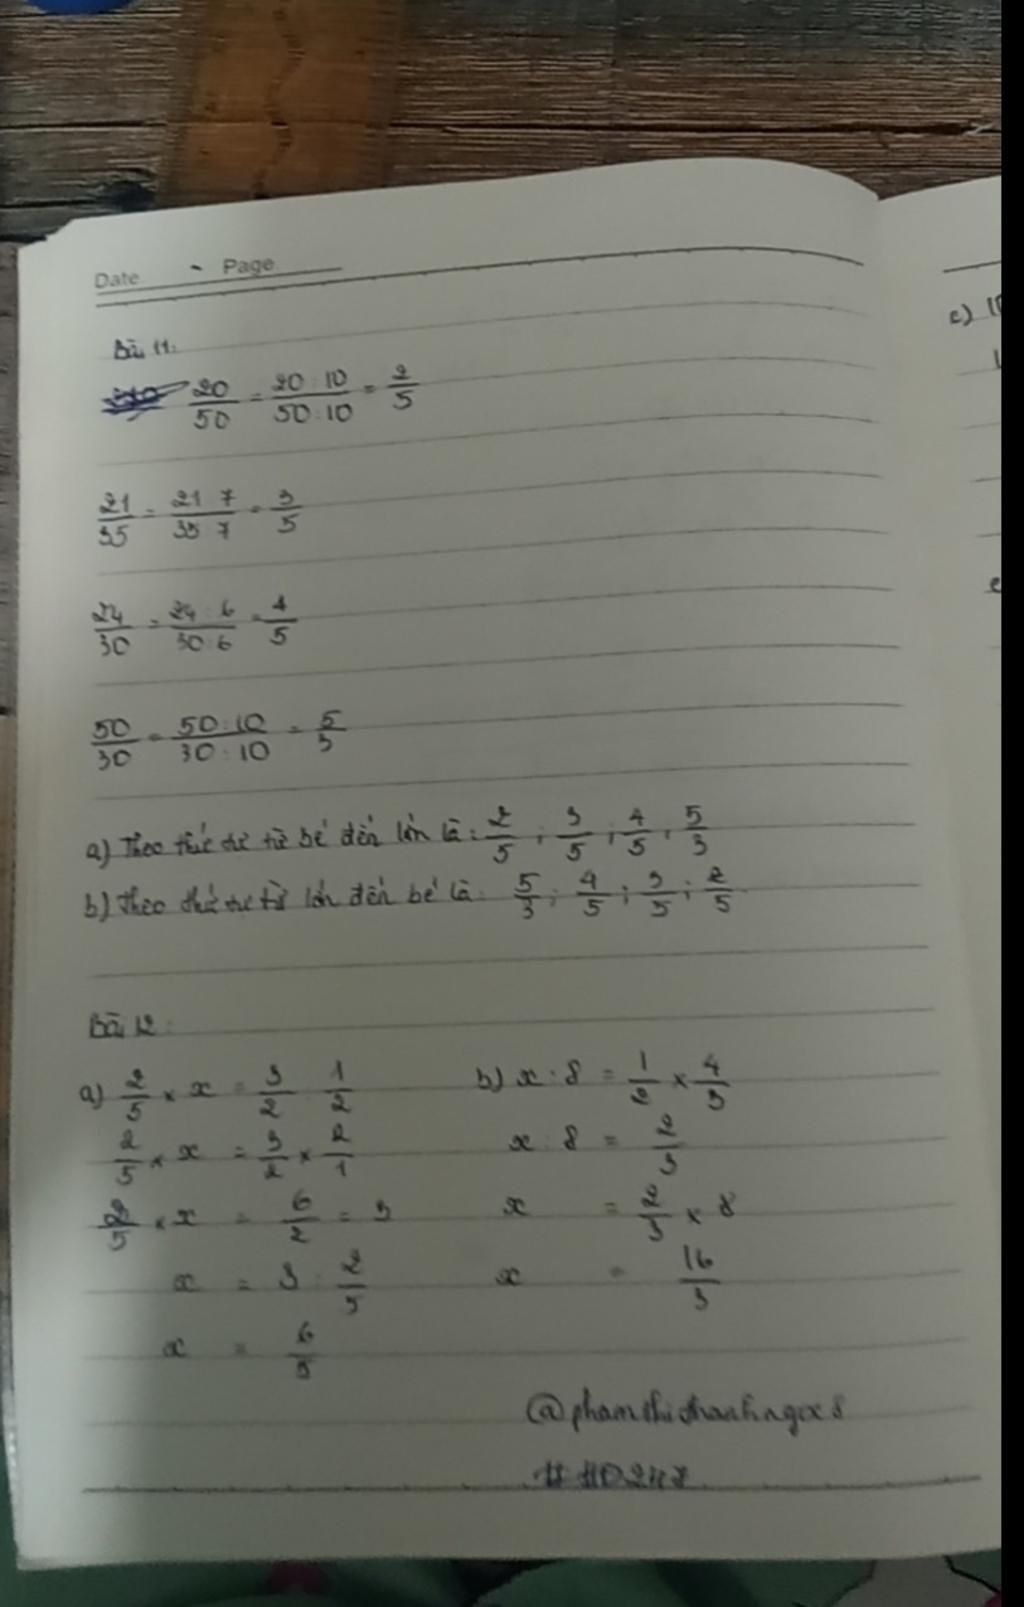 Date Page
Bài 11:
20/50 = 20:10/50:10 = 2/5
21/35 = 21 7/35 7 = 3/5
24/30 = 24:6/30:6 = 4/5
50/30 = 50:10/30:10 = 5/3
a) Theo thứ tự từ bé đến lớn là: 2/5; 3/5; 4/5; 5/3
b) Theo thứ tự từ lớn đến bé là: 5/3; 4/5; 3/5; 2/5.
Bài 12:
a) 2/5 × x = 3/2 : 1/2
2/5 × x = 3/2 × 2/1
2/5 × x = 6/2 = 3
x = 3 : 2/5
x = 6/5
b) x : 8 = 1/2 × 4/3
x : 8 = 2/3
x = 2/3 × 8
x = 16/3
@phamthithanhngoc8
c) 1